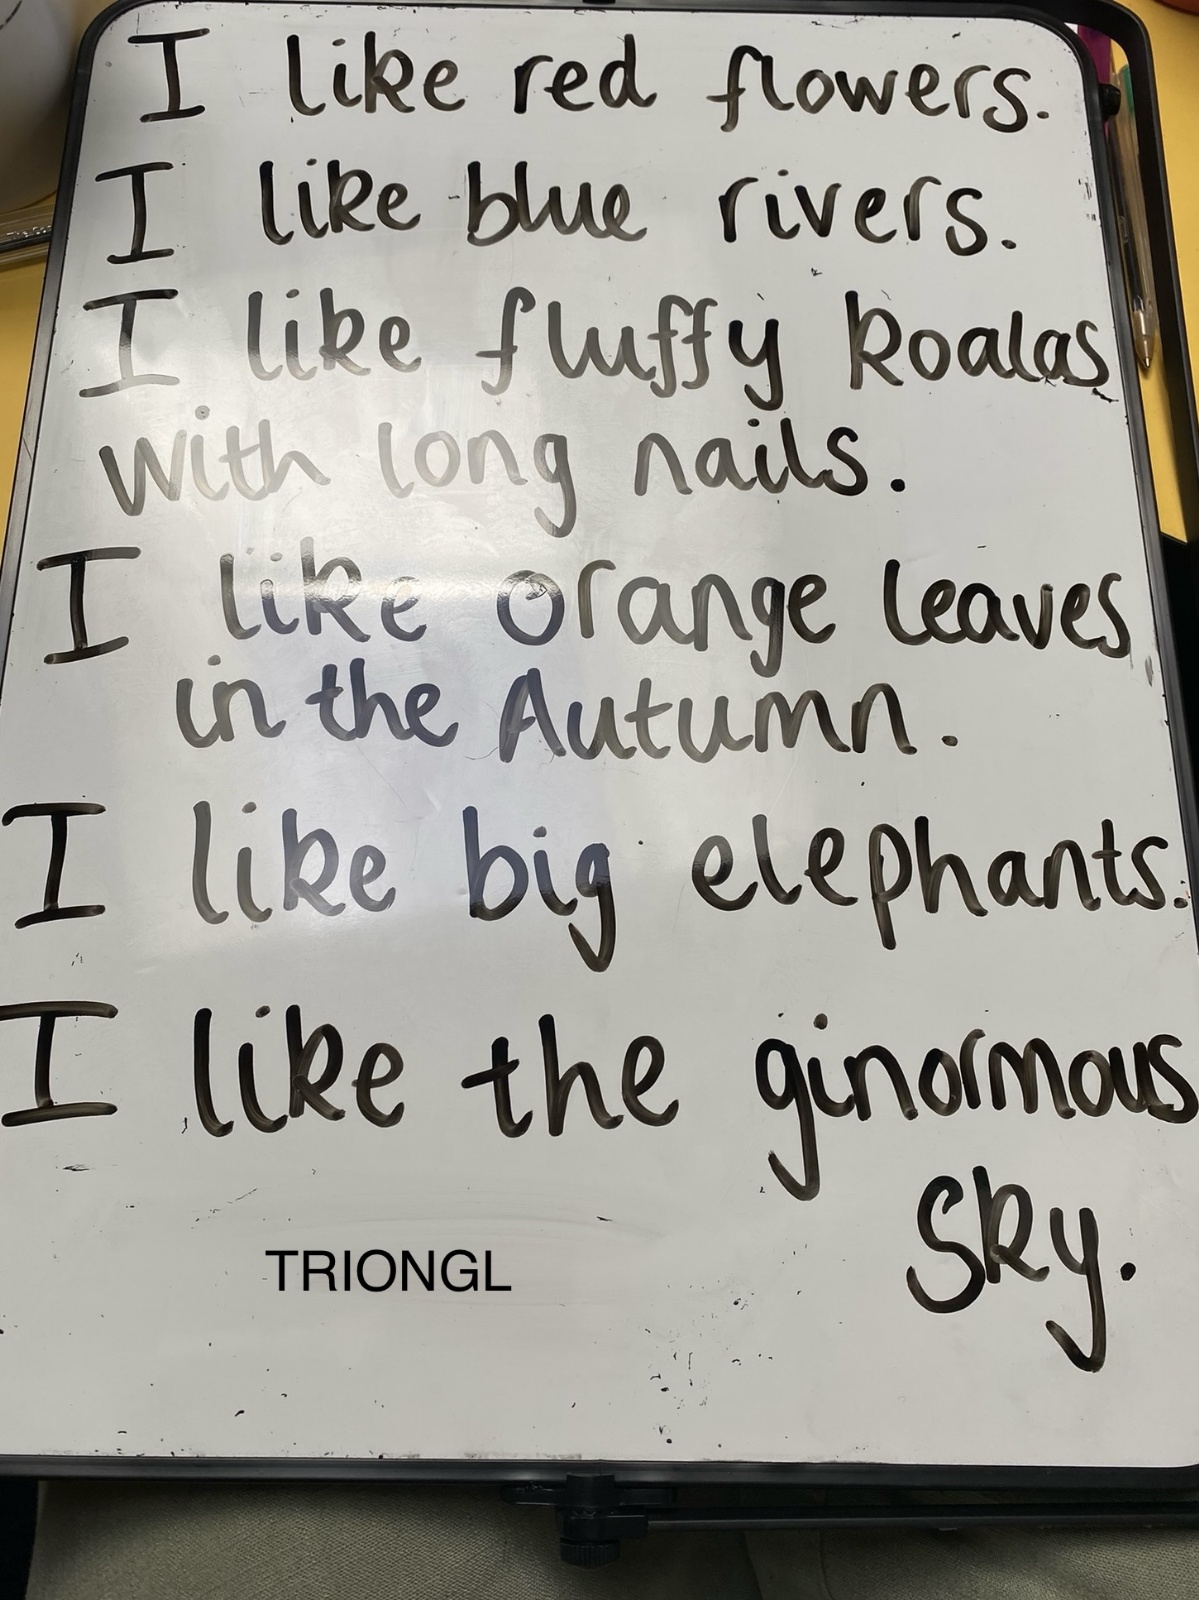 I like red flowers.
I like blue rivers.
I like fluffy koalas
with long nails.
I like orange leaves
in the Autumn.
I like big elephants.
I like the ginormous
sky.
TRIONGL